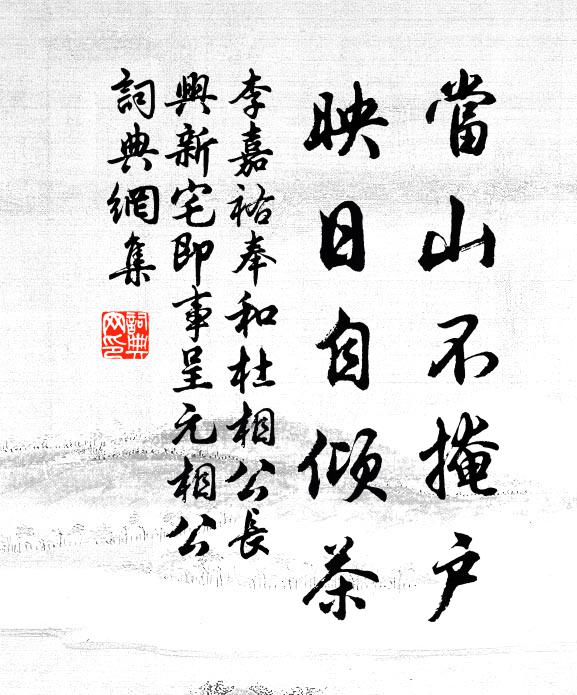 當山不掩户
映日自傾茶
李嘉祐奉和杜相公長
興新宅即事呈元相公
詞典網集
詞典
网印